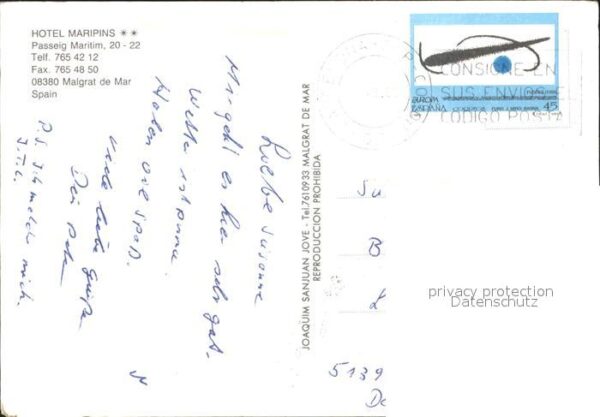 HOTEL MARIPINS ★★
Passeig Maritim, 20 - 22
Telf. 765 42 12
Fax. 765 48 50
08380 Malgrat de Mar
Spain
Liebe Susanne
Mir geht es hier sehr gut.
Wetter ist prima.
Haben viel Spaß.
Viele liebe Grüße
Dein
P.S. Ich melde mich.
JOAQUIM SANJUAN JOVE - Tel. 7610933 MALGRAT DE MAR
REPRODUCCION PROHIBIDA
EUROPA
ESPAÑA
45
CONSIGNE EN
SUS ENVIOS
CODIGO POSTAL
Su
B
L
5139
De
privacy protection
Datenschutz